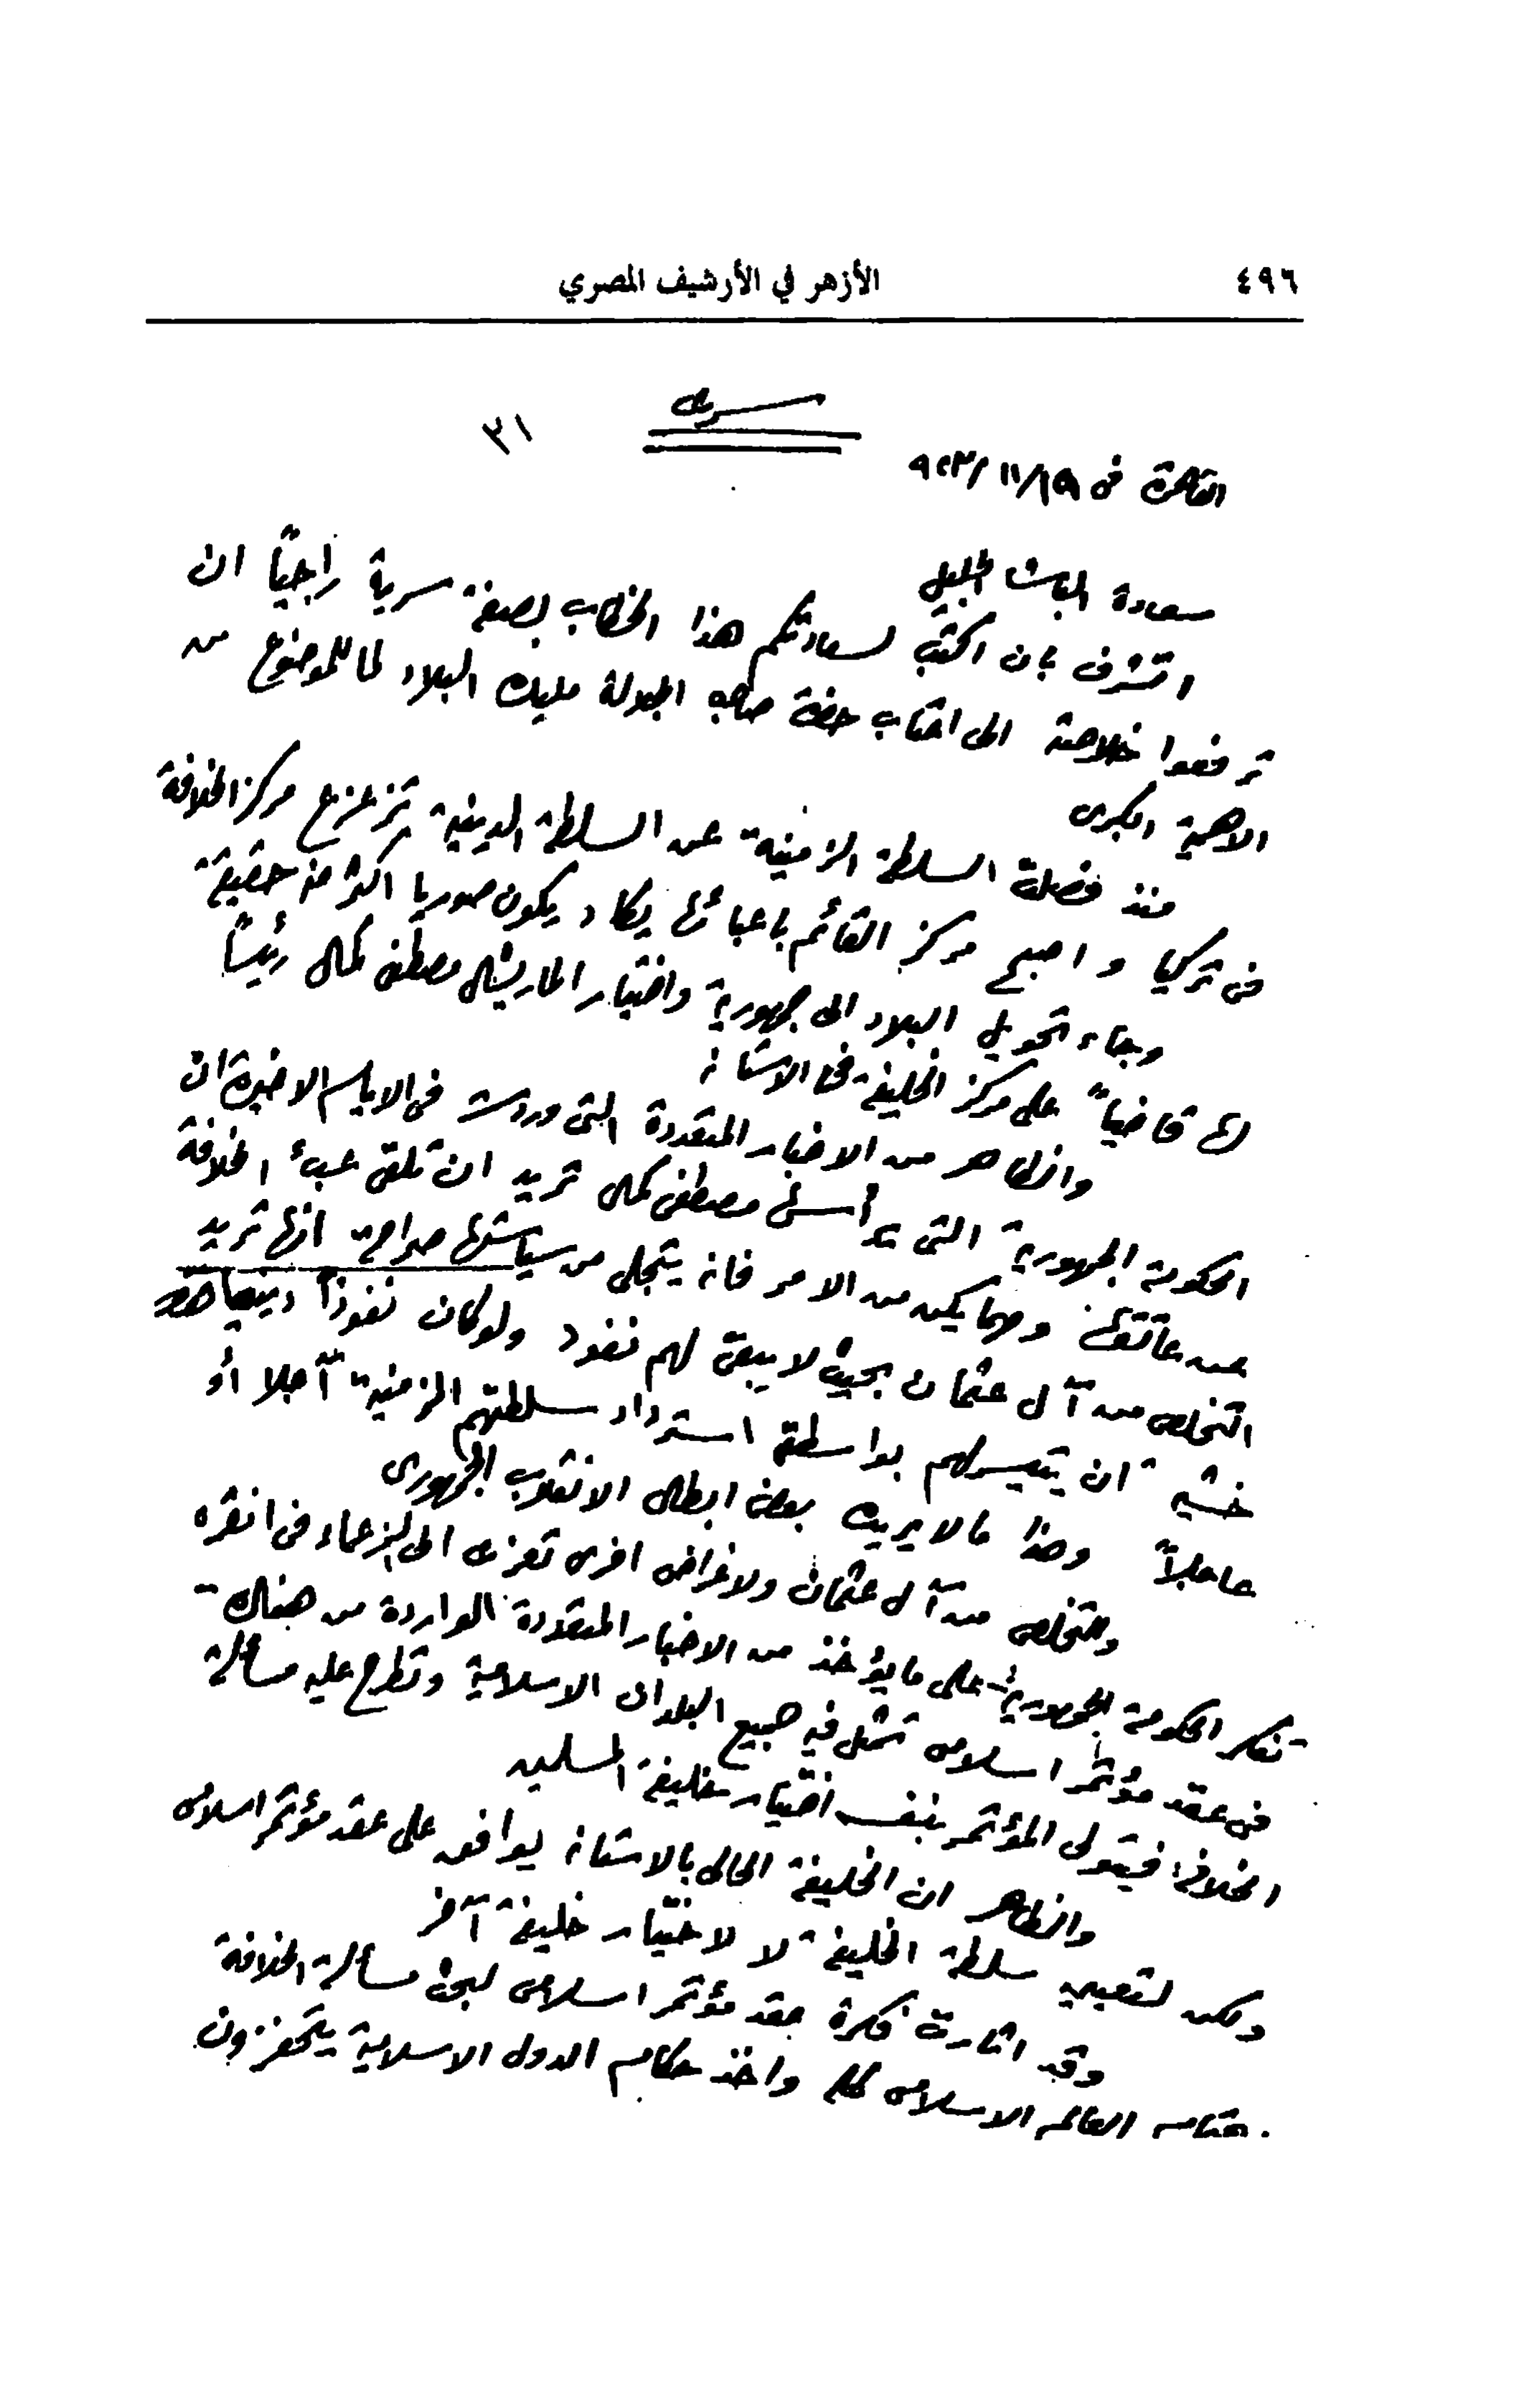 ٤٩٦
الأزهر في الأرشيف المصري
سرى
٣١
القاهرة فى ١٩/١١/٩٢٣
سعادة الباشا الجليل
اتشرف بان اكتب لسعادتكم هذا الخطاب بصفة سرية راجيًا ان
ترفعوا خلاصته الى اعتاب حضرة صاحب الجلالة مليك البلاد لما للموضوع من
الاهمية الكبرى
منذ فصلت السلطة الزمنية عن السلطة الدينية تزعزع مركز الخلافة
فى تركيا واصبح مركز القائم باعبائها يكاد يكون صوريا اكثر منه حقيقة
وجاء تحويل البلاد الى جمهورية واختيار الماريشال مصطفى كمال رئيسًا
لها قاضياً على مركز الخليفة فى الاستانة
والظاهر من الاخبار المتعددة التى وردت فى الايام الاخيرة ان
الحكومة الجمهورية التى يرأسها مصطفى كمال تريد ان تلقى عبء الخلافة
عن عاتقها ومهما يكن من الامر فانه يتجلى من سياستها صراحة انها تريد
التخلص من آل عثمان بحيث لا يبقى لهم نفوذ ولو كان نفوذاً دينياً
خشية ان يتيسر لهم بواسطته استرداد سلطتهم الزمنية آجلا أو
عاجلاً وهذا ما لا يريده بعض ابطال الانقلاب الجمهورى
وللتخلص من آل عثمان ولاغراض اخرى تعزى الى الزعماء فى انقره
تفكر الحكومة الجمهورية على ما يؤخذ من الاخبار المتعددة الواردة من هناك
فى عقد مؤتمر اسلامى تمثل فيه جميع البلدان الاسلامية وتطرح عليه مسألة
الخلافة فيتولى المؤتمر بنفسه اختيار خليفة المسلمين
والظاهر ان الخليفة الحالى بالاستانة يوافق على عقد مؤتمر اسلامى
ولكن لتعيين سلطة الخليفة لا لاختيار خليفة آخر
وقد اثارت فكرة عقد مؤتمر اسلامى لبحث مسألة الخلافة
العالم الاسلامى كله واخذ حكام الدول الاسلامية يتحفزون